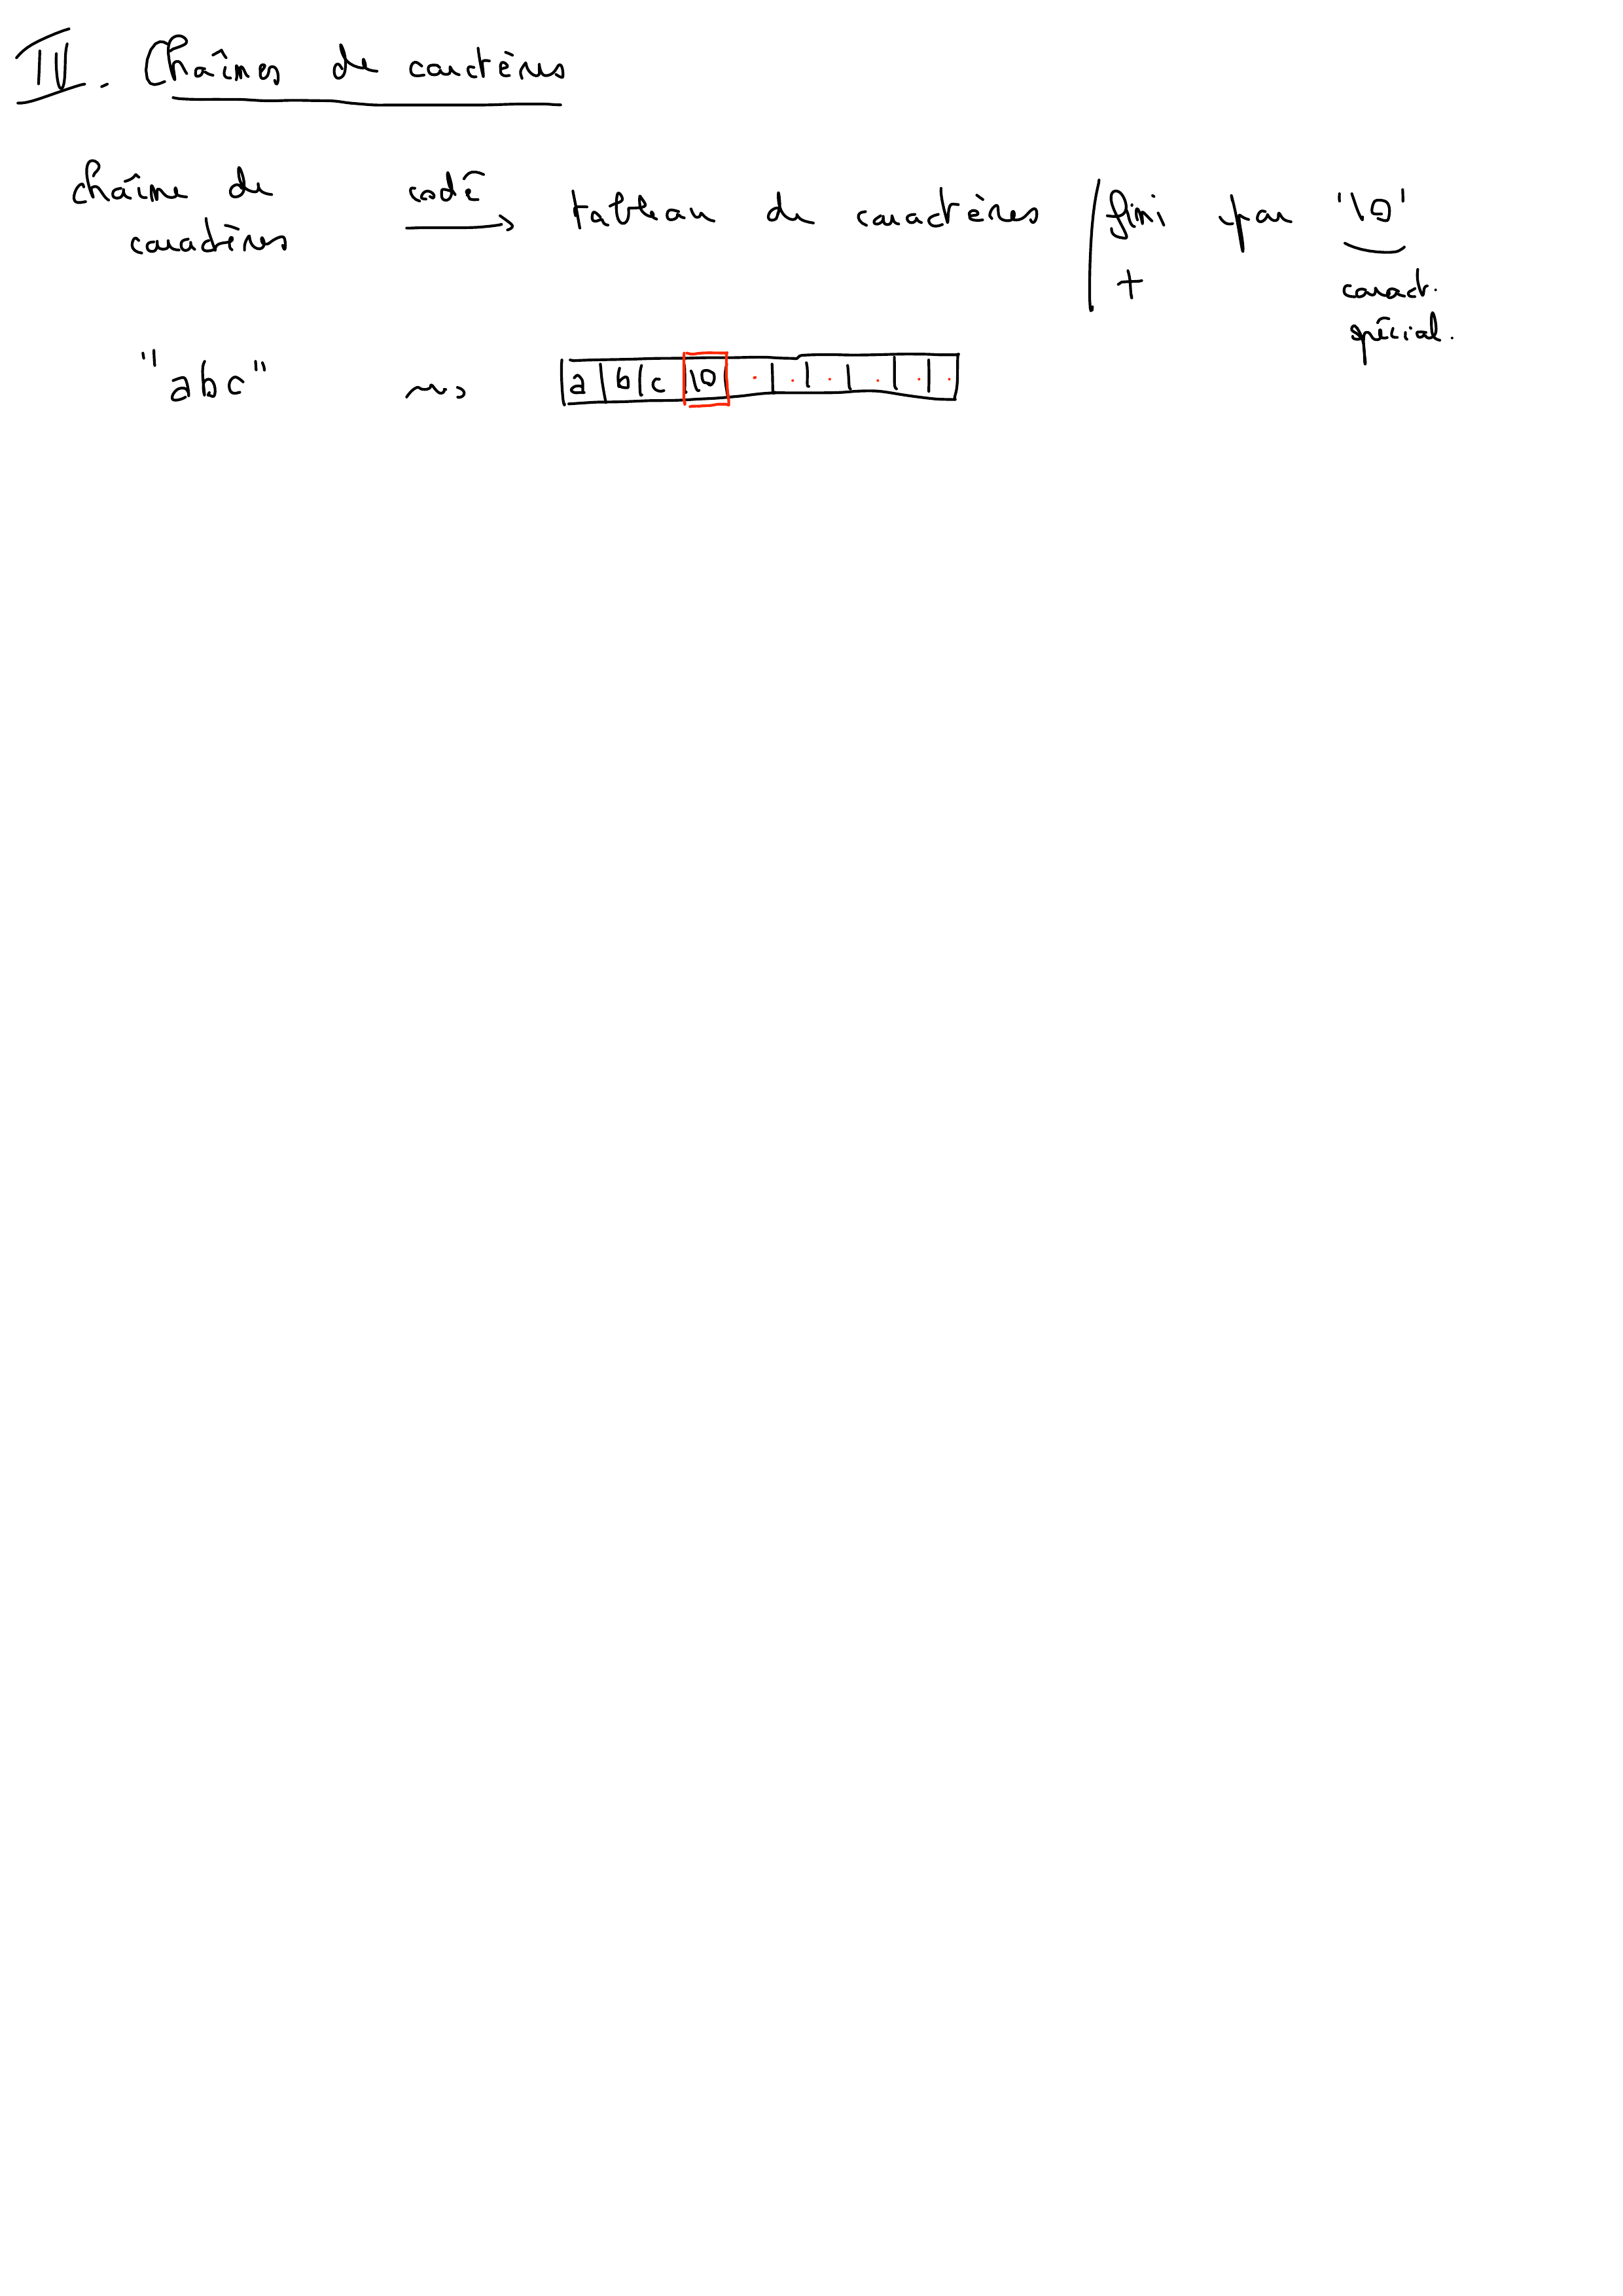 IV. Chaînes de caractères
chaîne de caractères codé → tableau de caractères | fini par '\0'
+ caract. spécial.
"abc" ~> a|b|c|\0| . | . | . | . | . | .